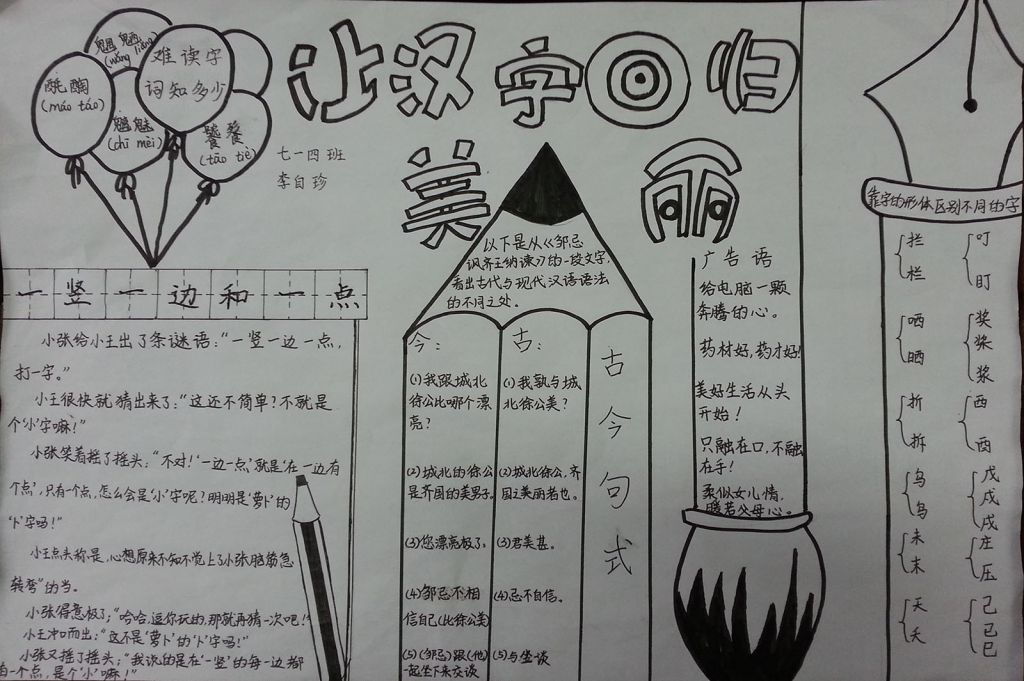 让汉字回归
美丽
魍魉
(wǎng liǎng)
难读字
词知多少
酕醄
(máo táo)
魑魅
(chī mèi)
饕餮
(tāo tiè)
七一四班
李自珍
一竖一边和一点
小张给小王出了条谜语：“一竖一边一点，
打一字。”
小王很快就猜出来了：“这还不简单？不就是
个‘小’字嘛！”
小张笑着摇了摇头：“不对！‘一边一点’就是‘在一边有
个点’，只有一个点，怎么会是‘小’字呢？明明是‘萝卜’的
‘卜’字吗！”
小王点头称是，心想原来不知不觉上了小张脑筋急
转弯”的当。
小张得意极了：“哈哈，逗你玩的，那就再猜一次吧！”
小王冲口而出：“这不是‘萝卜’的‘卜’字吗！”
小张又摇了摇头：“我说的是在‘一竖’的每一边都
有一个点，是个‘小’嘛！”
以下是从《邹忌
讽齐王纳谏》的一段文字，
看出古代与现代汉语语法
的不同之处。
今：
(1)我跟城北
徐公比哪个漂
亮？
(2)城北的徐公
是齐国的美男子
(3)您漂亮极了
(4)邹忌不相
信自己(比徐公美)
(5)(邹忌)跟(他)
一起坐下来交谈
古：
(1)我孰与城
北徐公美？
(2)城北徐公，齐
国之美丽者也。
(3)君美甚。
(4)忌不自信。
(5)与坐谈
古今句式
广告语
给电脑一颗
奔腾的心。
药材好，药才好！
美好生活从头
开始！
只融在口，不融
在手！
柔似女儿情，
暖若父母心。
靠字的形体区别不同的字
拦
栏
叮
盯
哂
晒
奖
桨
浆
折
拆
西
酉
鸟
乌
戊
戌
戍
未
末
庄
压
天
夭
己
已
巳